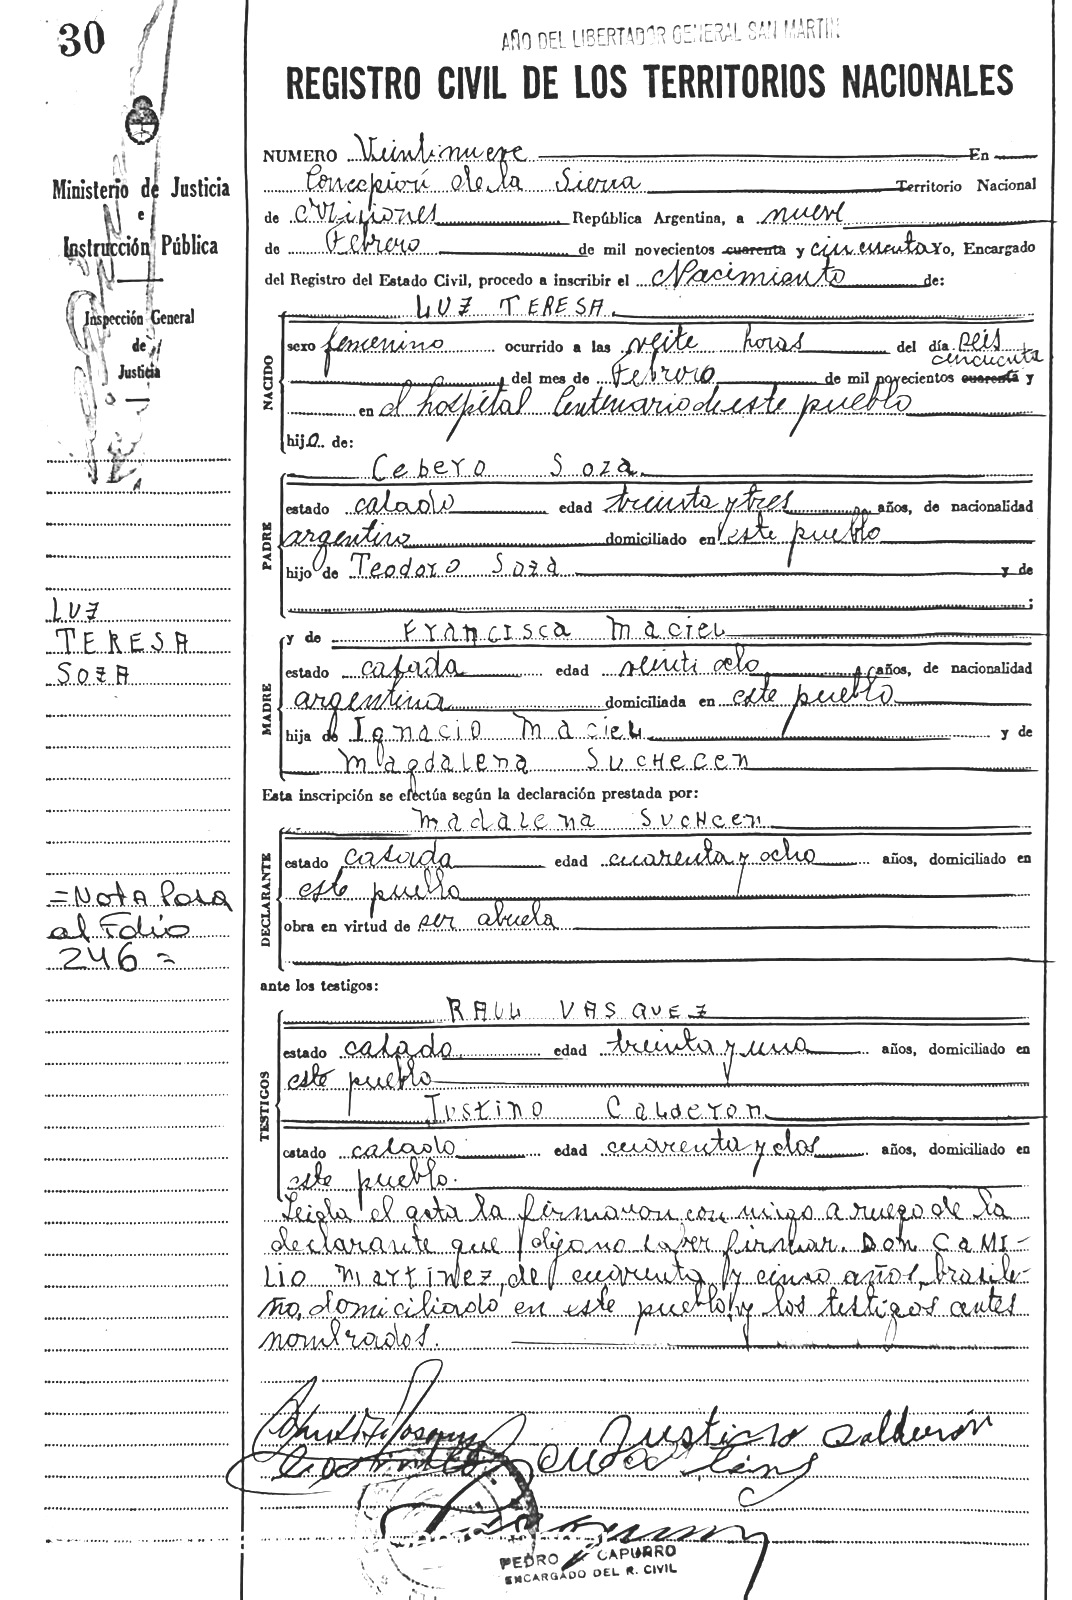 30
AÑO DEL LIBERTADOR GENERAL SAN MARTIN
REGISTRO CIVIL DE LOS TERRITORIOS NACIONALES
Ministerio de Justicia
e
Instrucción Pública
Inspección General
de
Justicia
NUMERO Veintinueve En
Concepción de la Sierra Territorio Nacional
de Misiones República Argentina, a nueve
de Febrero de mil novecientos cuarenta y cincuenta Yo, Encargado
del Registro del Estado Civil, procedo a inscribir el Nacimiento de:
NACIDO
LUZ TERESA
sexo femenino ocurrido a las veite horas del día seis
cincuenta
del mes de Febrero de mil novecientos cuarenta y
en el hospital Centenario de este pueblo
hija de:
PADRE
Cebero Soza
estado casado edad treinta y tres años, de nacionalidad
argentino domiciliado en este pueblo
hijo de Teodoro Soza y de
;
MADRE
y de Francisca Maciel
estado casada edad veinti ocho años, de nacionalidad
argentina domiciliada en este pueblo
hija de Ignacio Maciel y de
Magdalena Suchecen
Esta inscripción se efectúa según la declaración prestada por:
DECLARANTE
Madalena Suchcen
estado casada edad cuarenta y ocho años, domiciliado en
este pueblo
obra en virtud de ser abuela
ante los testigos:
TESTIGOS
RAUL VASQUEZ
estado casado edad treinta y uno años, domiciliado en
este pueblo
Justino Calderon
estado casado edad cuarenta y dos años, domiciliado en
este pueblo.
Leida el acta la firmaron con migo a ruego de la
declarante que dijo no saber firmar. Don CAMI-
LIO Martinez, de cuarenta y cinco años, brasile-
ño, domiciliado en este pueblo y los testigos antes
nombrados.
LUZ
TERESA
SOZA
=NOTA Pasa
al Folio
246 =
Justino Calderón
PEDRO CAPURRO
ENCARGADO DEL R. CIVIL